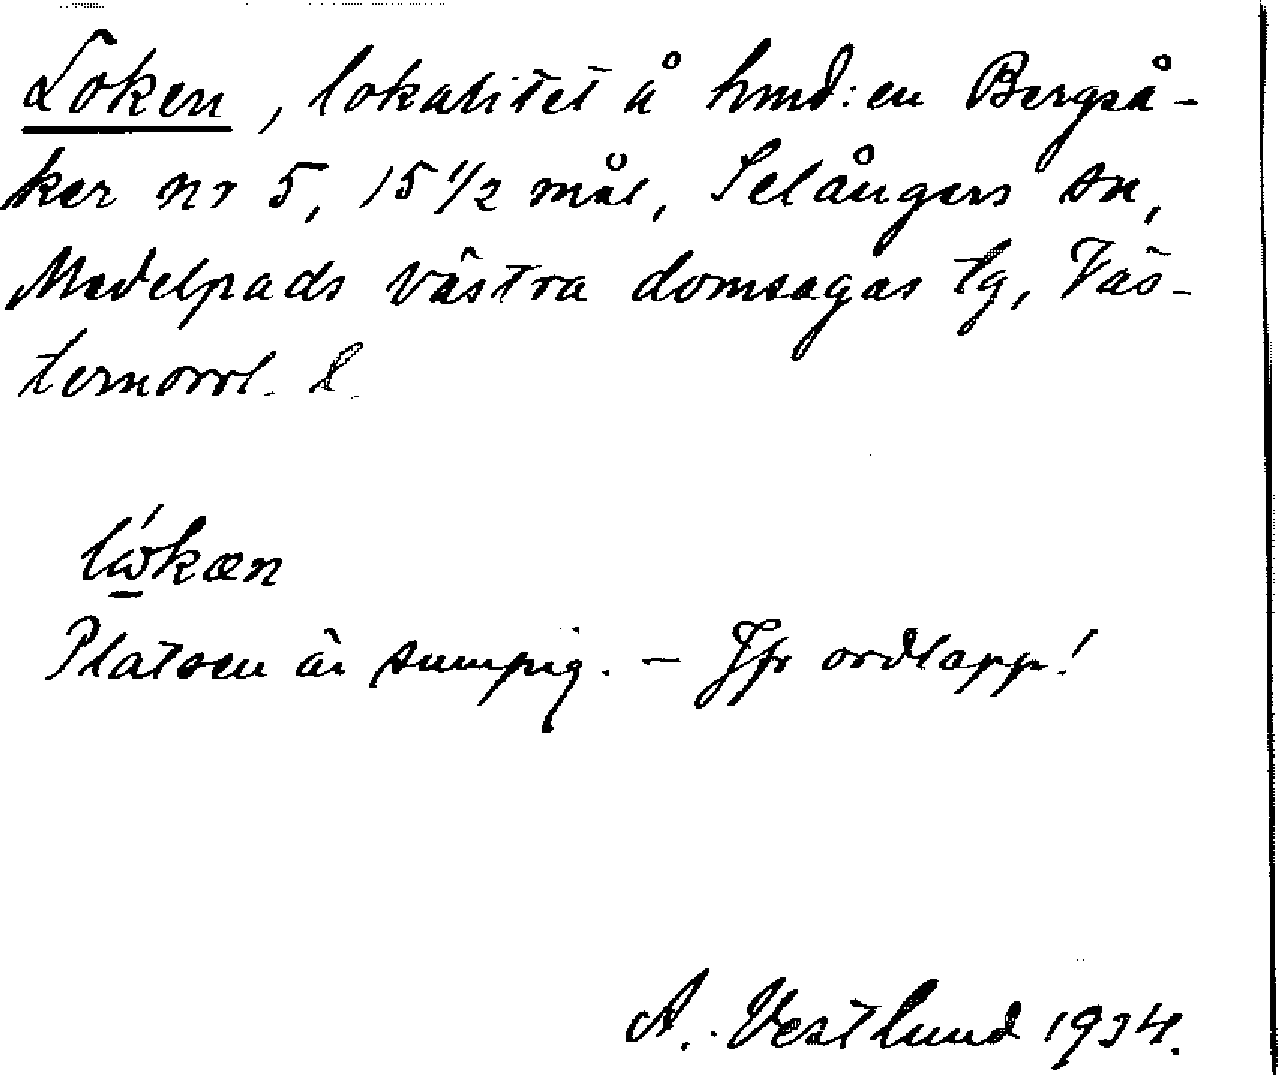 Loken, lokalitet å hmd:en Bergså-
ker nr 5, 15 1/2 mål, Selångers sn,
Medelpads västra domsagas tg, Väs-
ternorrl. l.
Platsen är sumpig. – Jfr ordlapp!
A. Vestlund 1934.